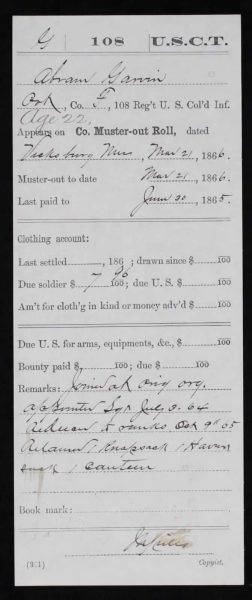 G | 108 | U.S.C.T.
Abram Garvin
Co. F, 108 Reg't U. S. Col'd Inf.
Age 22.
Appears on Co. Muster-out Roll, dated
Vicksburg Miss, Mar 21, 1866.
Muster-out to date Mar 21, 1866.
Last paid to June 30, 1865.
Clothing account:
Last settled, 186 ; drawn since $ 100
Due soldier $ 7 96 100; due U. S. $ 100
Am't for cloth'g in kind or money adv'd $ 100
Due U. S. for arms, equipments, &c., $ 100
Bounty paid $ 100; due $ 100
Remarks: Joined at orig org.
appointed Sgt July 8. 64
Reduced to ranks Oct 9th 65
Retained 1 Knapsack 1 Haver
sack 1 canteen
Book mark:
(331) Copyist.